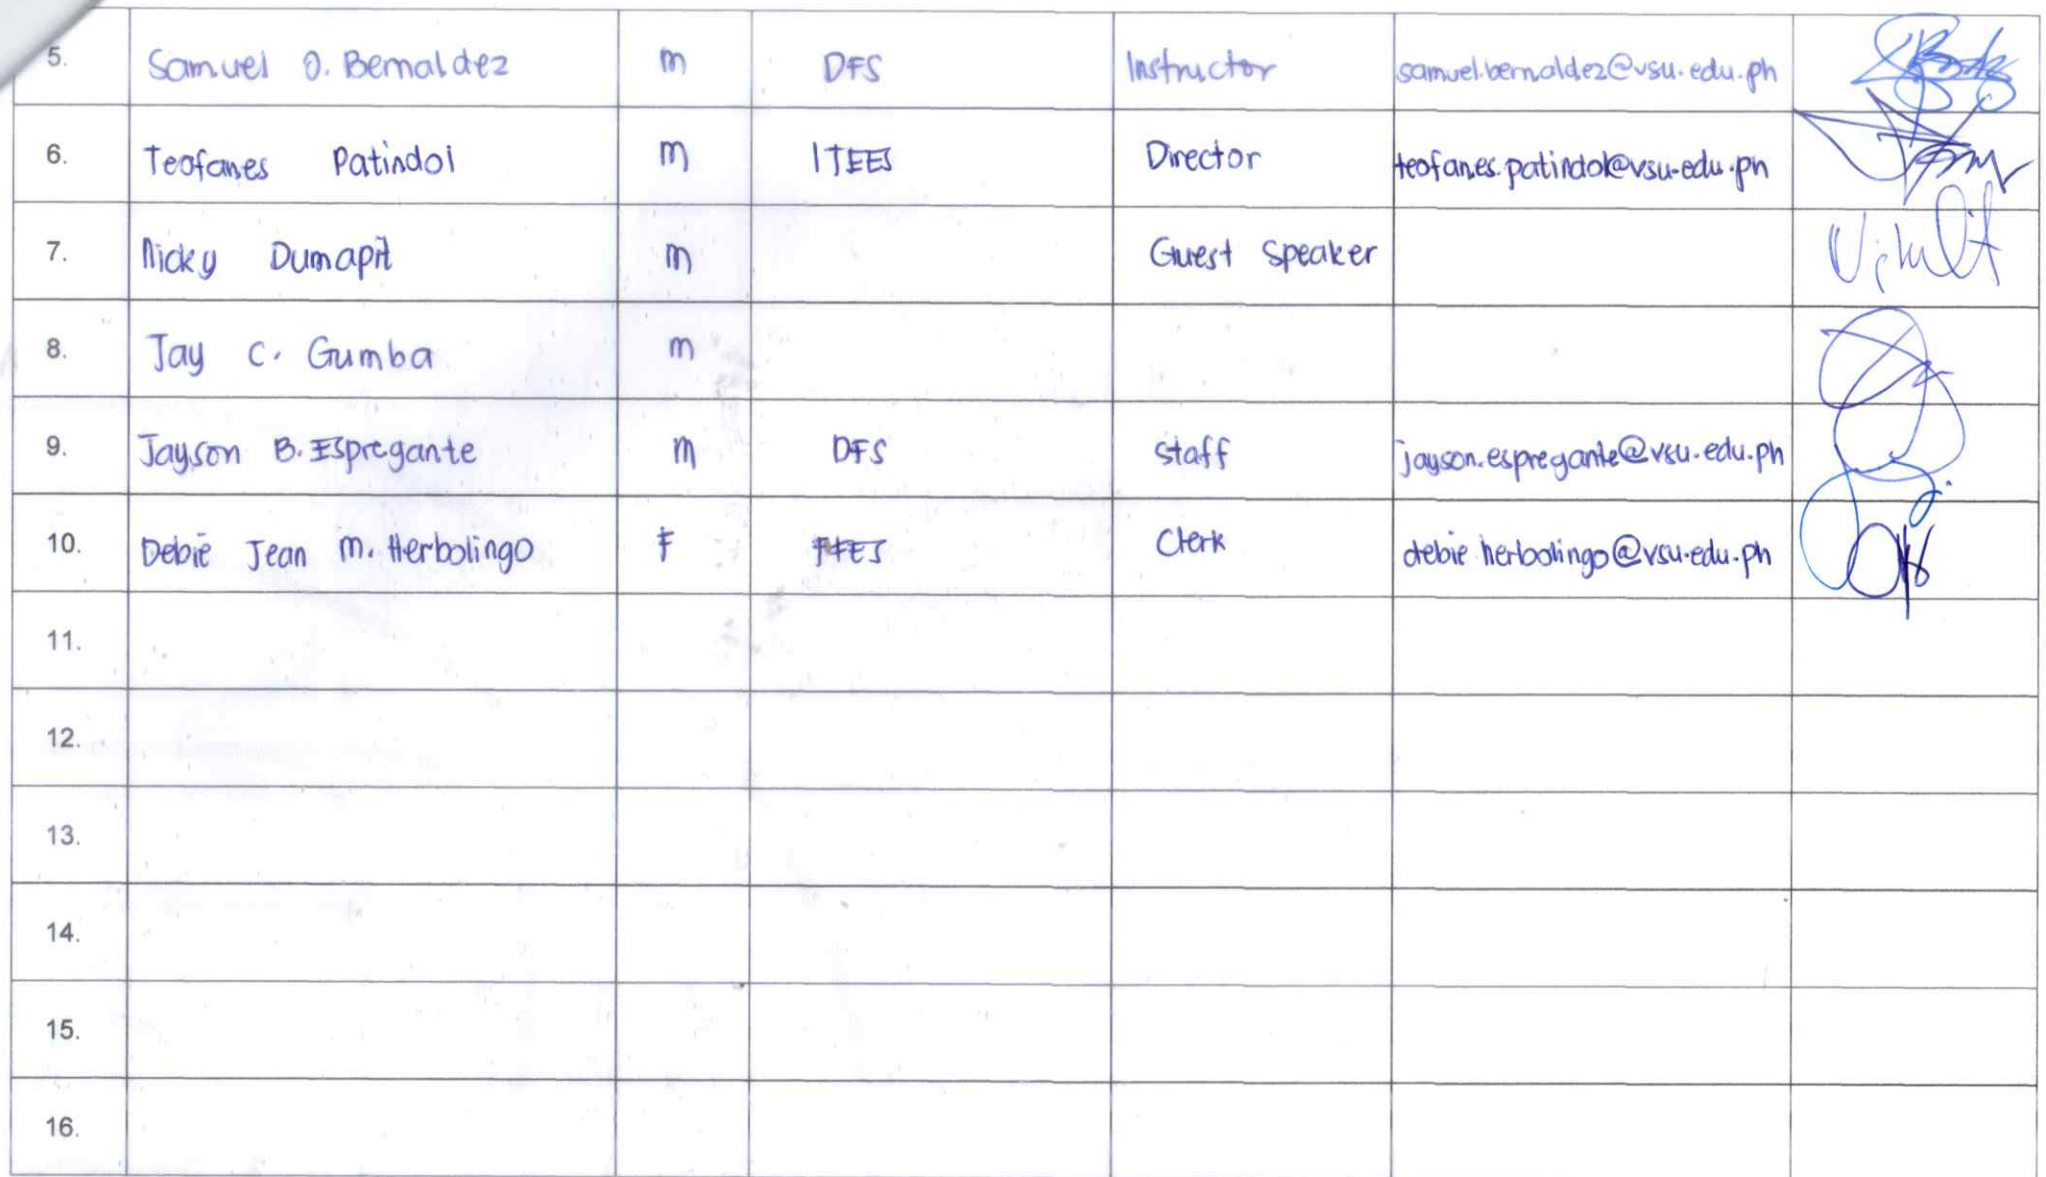 5. Samuel O. Bernaldez m DFS Instructor samuel.bernaldez@vsu.edu.ph
6. Teofanes Patindol m ITEES Director teofanes.patindol@vsu.edu.ph
7. Nicky Dumapit m Guest Speaker
8. Jay C. Gumba m
9. Jayson B. Espregante m DFS Staff jayson.espregante@vsu.edu.ph
10. Debie Jean M. Herbolingo F FFES Clerk debie.herbolingo@vsu.edu.ph
11.
12.
13.
14.
15.
16.